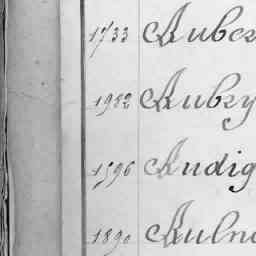 1733 Auber
1982 Aubry
1596 Audig
1890 Aulno